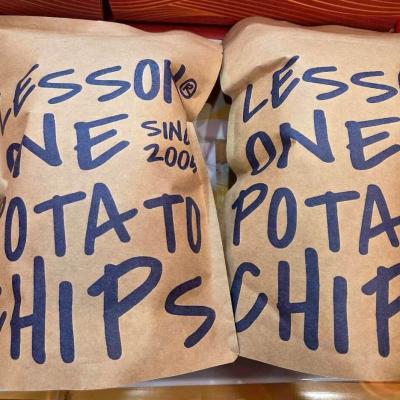 LESSON®
ONE
SINCE
POTATO
CHIPS
LESSO
ONE
POTA
CHIPS